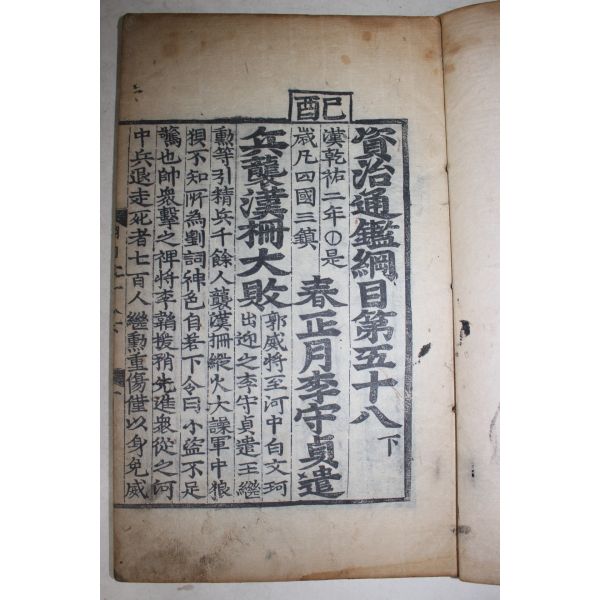 資治通鑑綱目第五十八 下
己酉
漢乾祐二年○是
歲凡四國三鎮
春正月李守貞遣
兵襲漢柵大敗
郭威將至河中白文珂
出迎之李守貞遣王繼
勳等引精兵千餘人襲漢柵縱火大譟軍中狼
狽不知所為劉詞神色自若下令曰小盜不足
驚也帥衆擊之裨將李韜援矟先進衆從之河
中兵退走死者七百人繼勳重傷僅以身免威